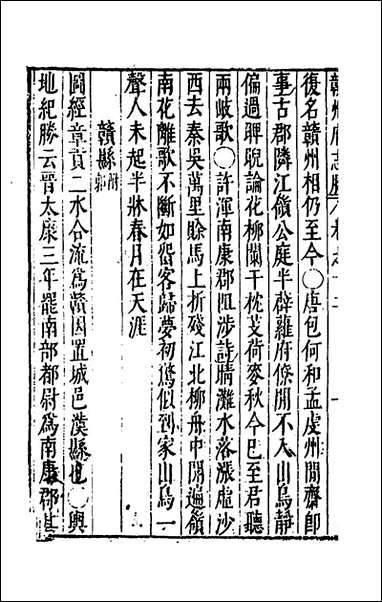 贛州府志
復名贛州相仍至今○唐包何和孟虔州閒齋即
事古郡隣江嶺公庭半薜蘿府僚閒不入山鳥靜
偏過睥睨論花柳闌干枕芰荷麥秋今已至君聽
兩岐歌○許渾南康郡阻涉詩晴灘水落漲虛沙
西去秦吳萬里賖馬上折殘江北柳舟中開遍嶺
南花離歌不斷如畱客歸夢初驚似到家山鳥一
聲人未起半牀春月在天涯
贛縣附郭
圖經章貢二水合流爲贛因置城邑漢縣也○輿
地紀勝云晉太康三年罷南部都尉爲南康郡甚